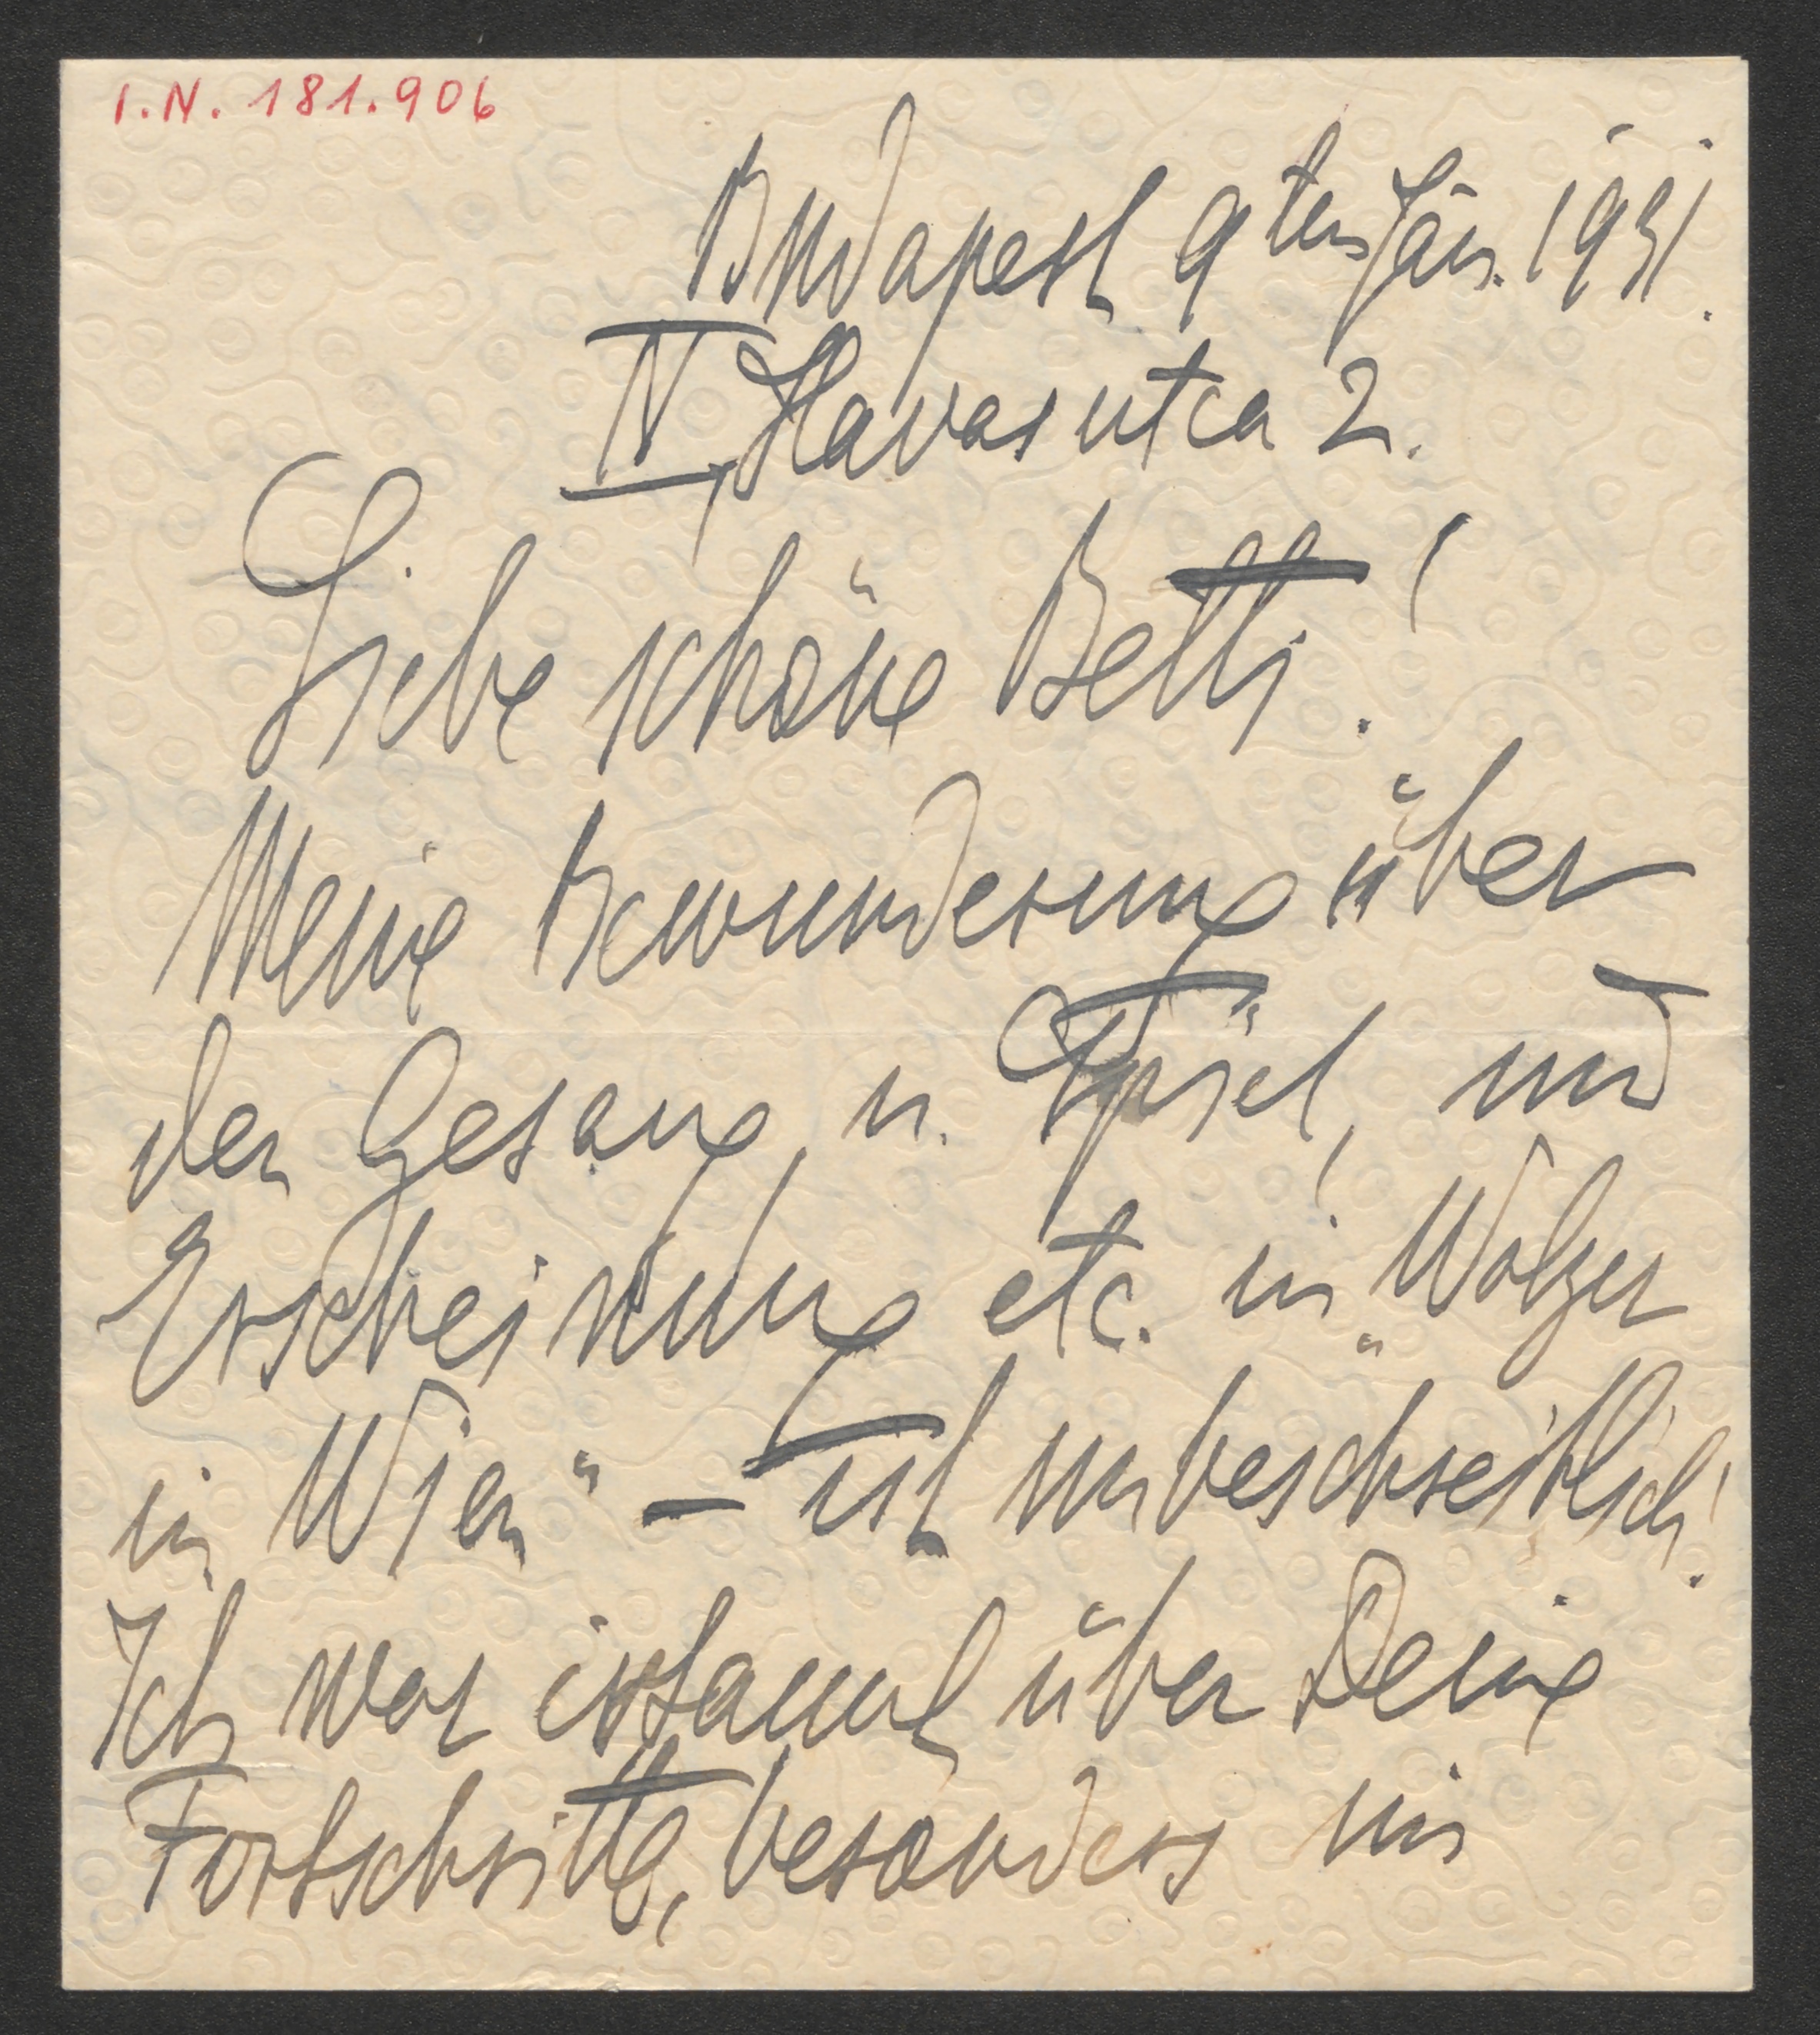 I.N. 181.906
Budapest 9ten Jän. 1931.
IV, Havas utca 2.
Liebe schöne Betti!
Meine Bewunderung über
den Gesang u. Spiel, und
Erscheinung etc. in „Walzer
in Wien" – ist unbeschreiblich!
Ich war erstaunt über Deine
Fortschritte, besonders im